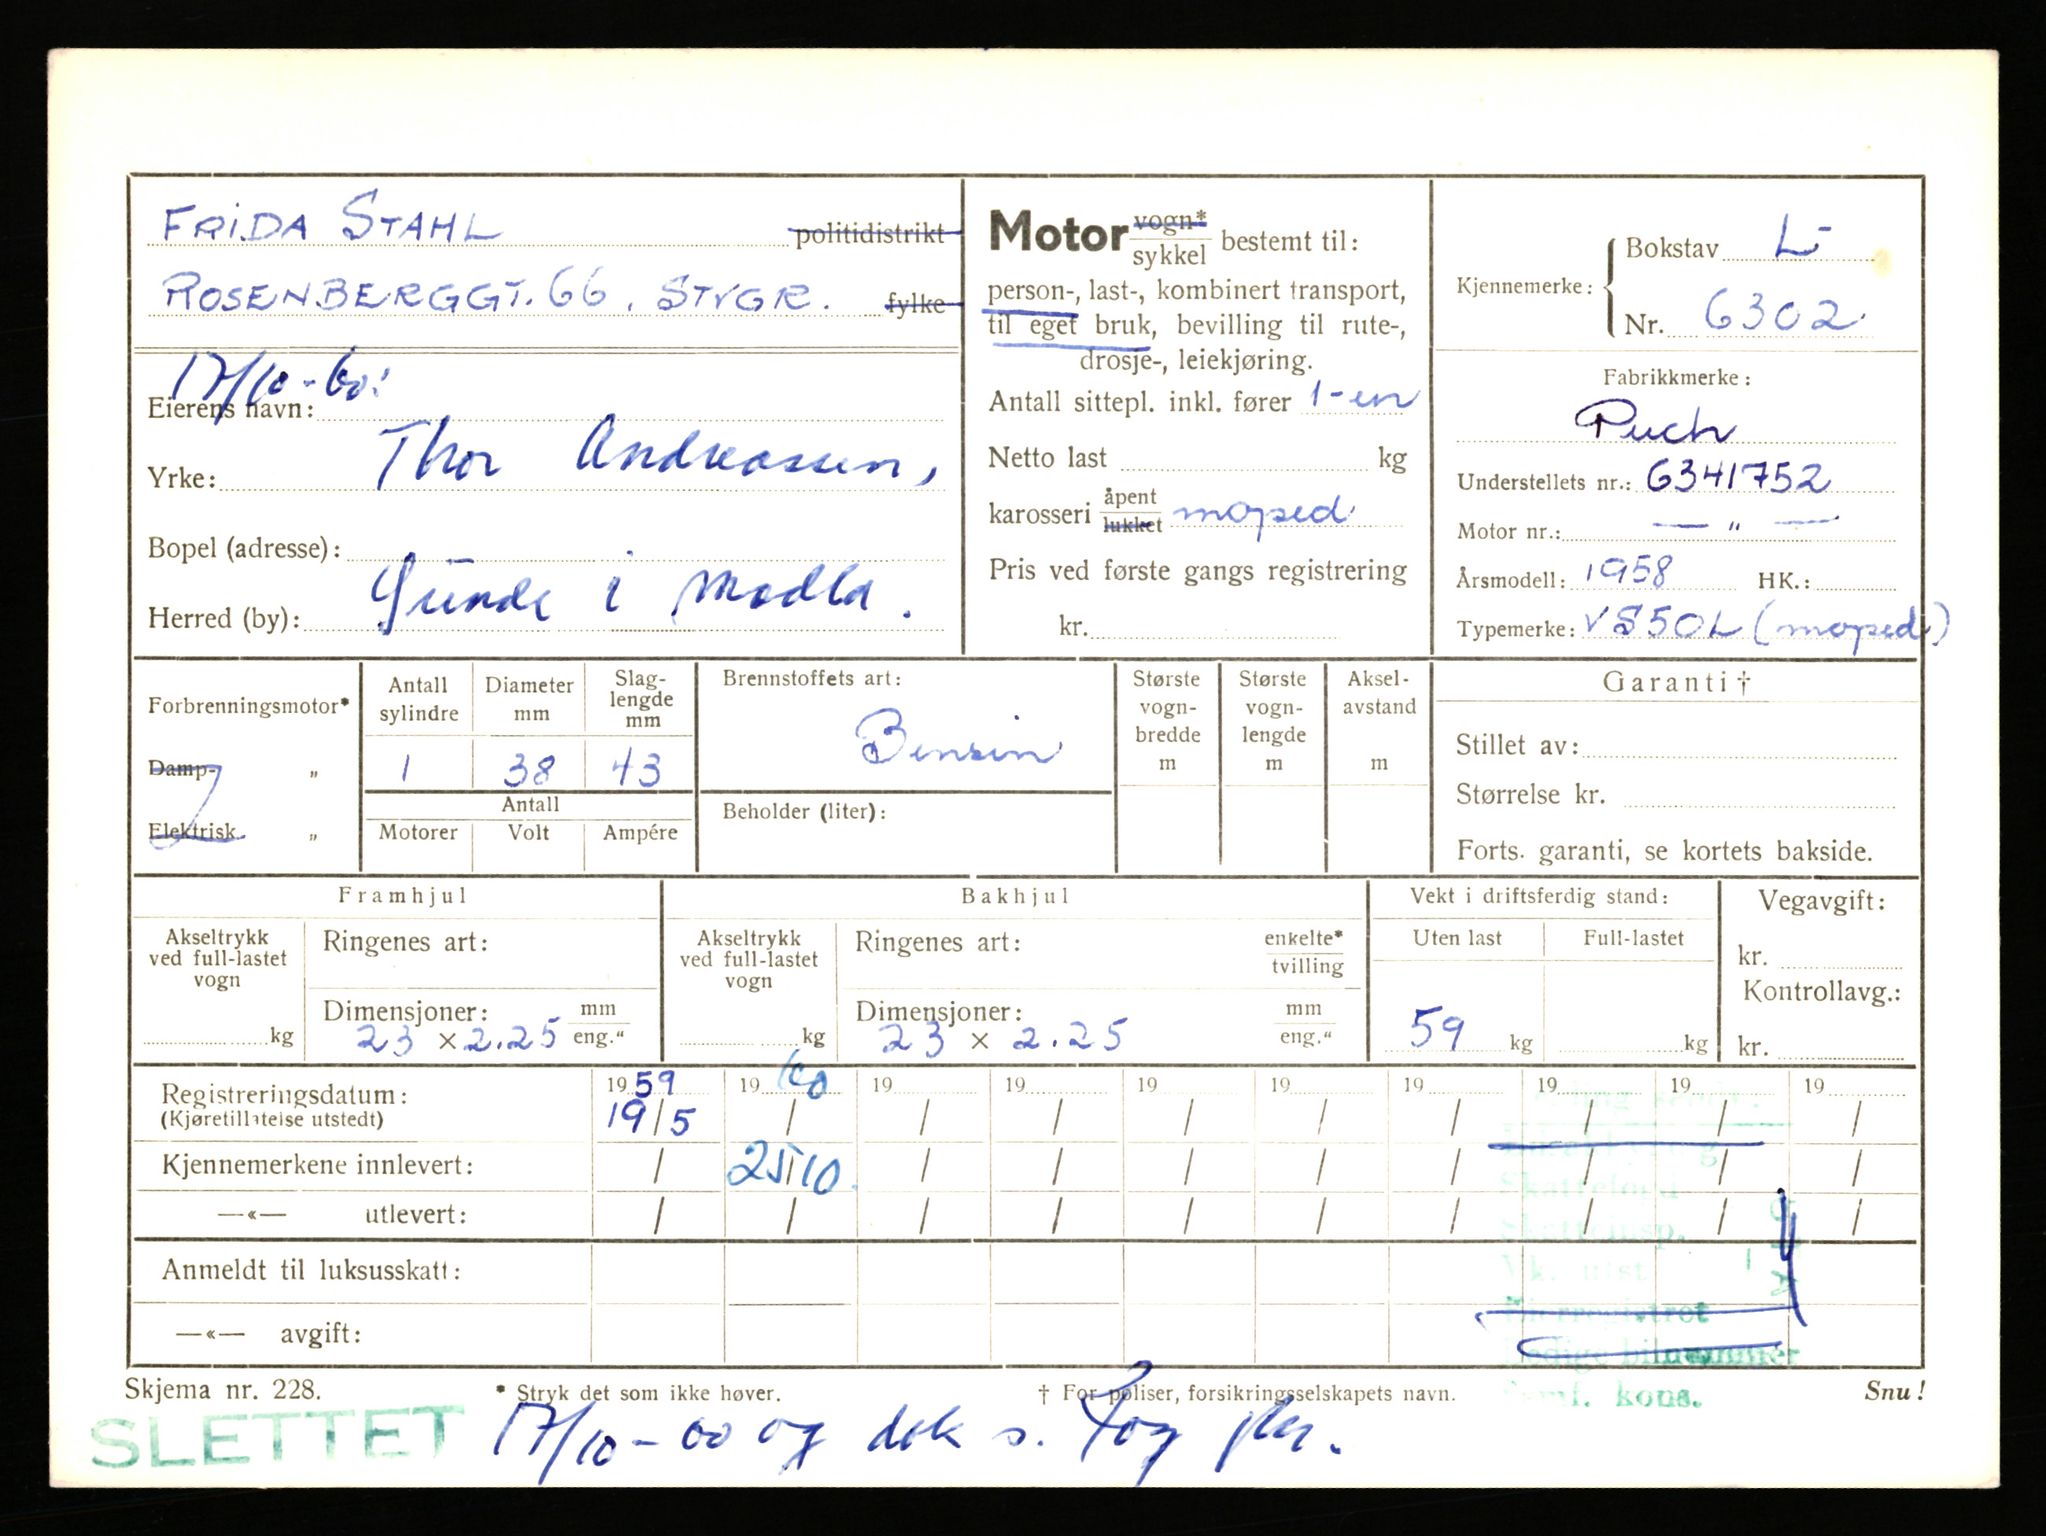 FRIDA STAHL politidistrikt
ROSENBERGGT. 66, STVGR. fylke
17/10-60:
Eierens navn:
Thor Andreassen,
Yrke:
Bopel (adresse):
Sunde i Madla.
Herred (by):
Motor vogn* / sykkel bestemt til:
person-, last-, kombinert transport,
til eget bruk, bevilling til rute-,
drosje-, leiekjøring.
Antall sittepl. inkl. fører 1-en
Netto last kg
karosseri åpent / lukket moped
Pris ved første gangs registrering
kr.
Kjennemerke: Bokstav L-
Nr. 6302
Fabrikkmerke:
Puch
Understellets nr.: 6341752
Motor nr.: — " —
Årsmodell: 1958 HK.:
Typemerke: VS50L (moped)
Forbrenningsmotor*
Damp- "
Elektrisk "
Antall sylindre Diameter mm Slag-lengde mm
1 38 43
Antall
Motorer Volt Ampére
Brennstoffets art:
Bensin
Beholder (liter):
Største vogn-bredde m
Største vogn-lengde m
Aksel-avstand m
Garanti †
Stillet av:
Størrelse kr.
Forts. garanti, se kortets bakside.
Framhjul
Akseltrykk ved full-lastet vogn kg
Ringenes art:
Dimensjoner: mm / eng."
23 x 2.25
Bakhjul
Akseltrykk ved full-lastet vogn kg
Ringenes art: enkelte* / tvilling
Dimensjoner: mm / eng."
23 x 2.25
Vekt i driftsferdig stand:
Uten last Full-lastet
59 kg kg
Vegavgift:
kr.
Kontrollavg.:
kr.
Registreringsdatum: 1959 1960 19 19 19 19 19 19 19 19
(Kjøretillatelse utstedt) 19/5 / / / / / / / / /
Kjennemerkene innlevert: / 25/10 / / / / / / / /
—«— utlevert: / / / / / / / / / /
Anmeldt til luksusskatt:
—«— avgift:
Skattefogd
Skatteinsp.
Vk. utst
Ledige bilnummer
kons.
Skjema nr. 228. * Stryk det som ikke høver. † For poliser, forsikringsselskapets navn. Snu!
SLETTET 17/10-60 og dek s.